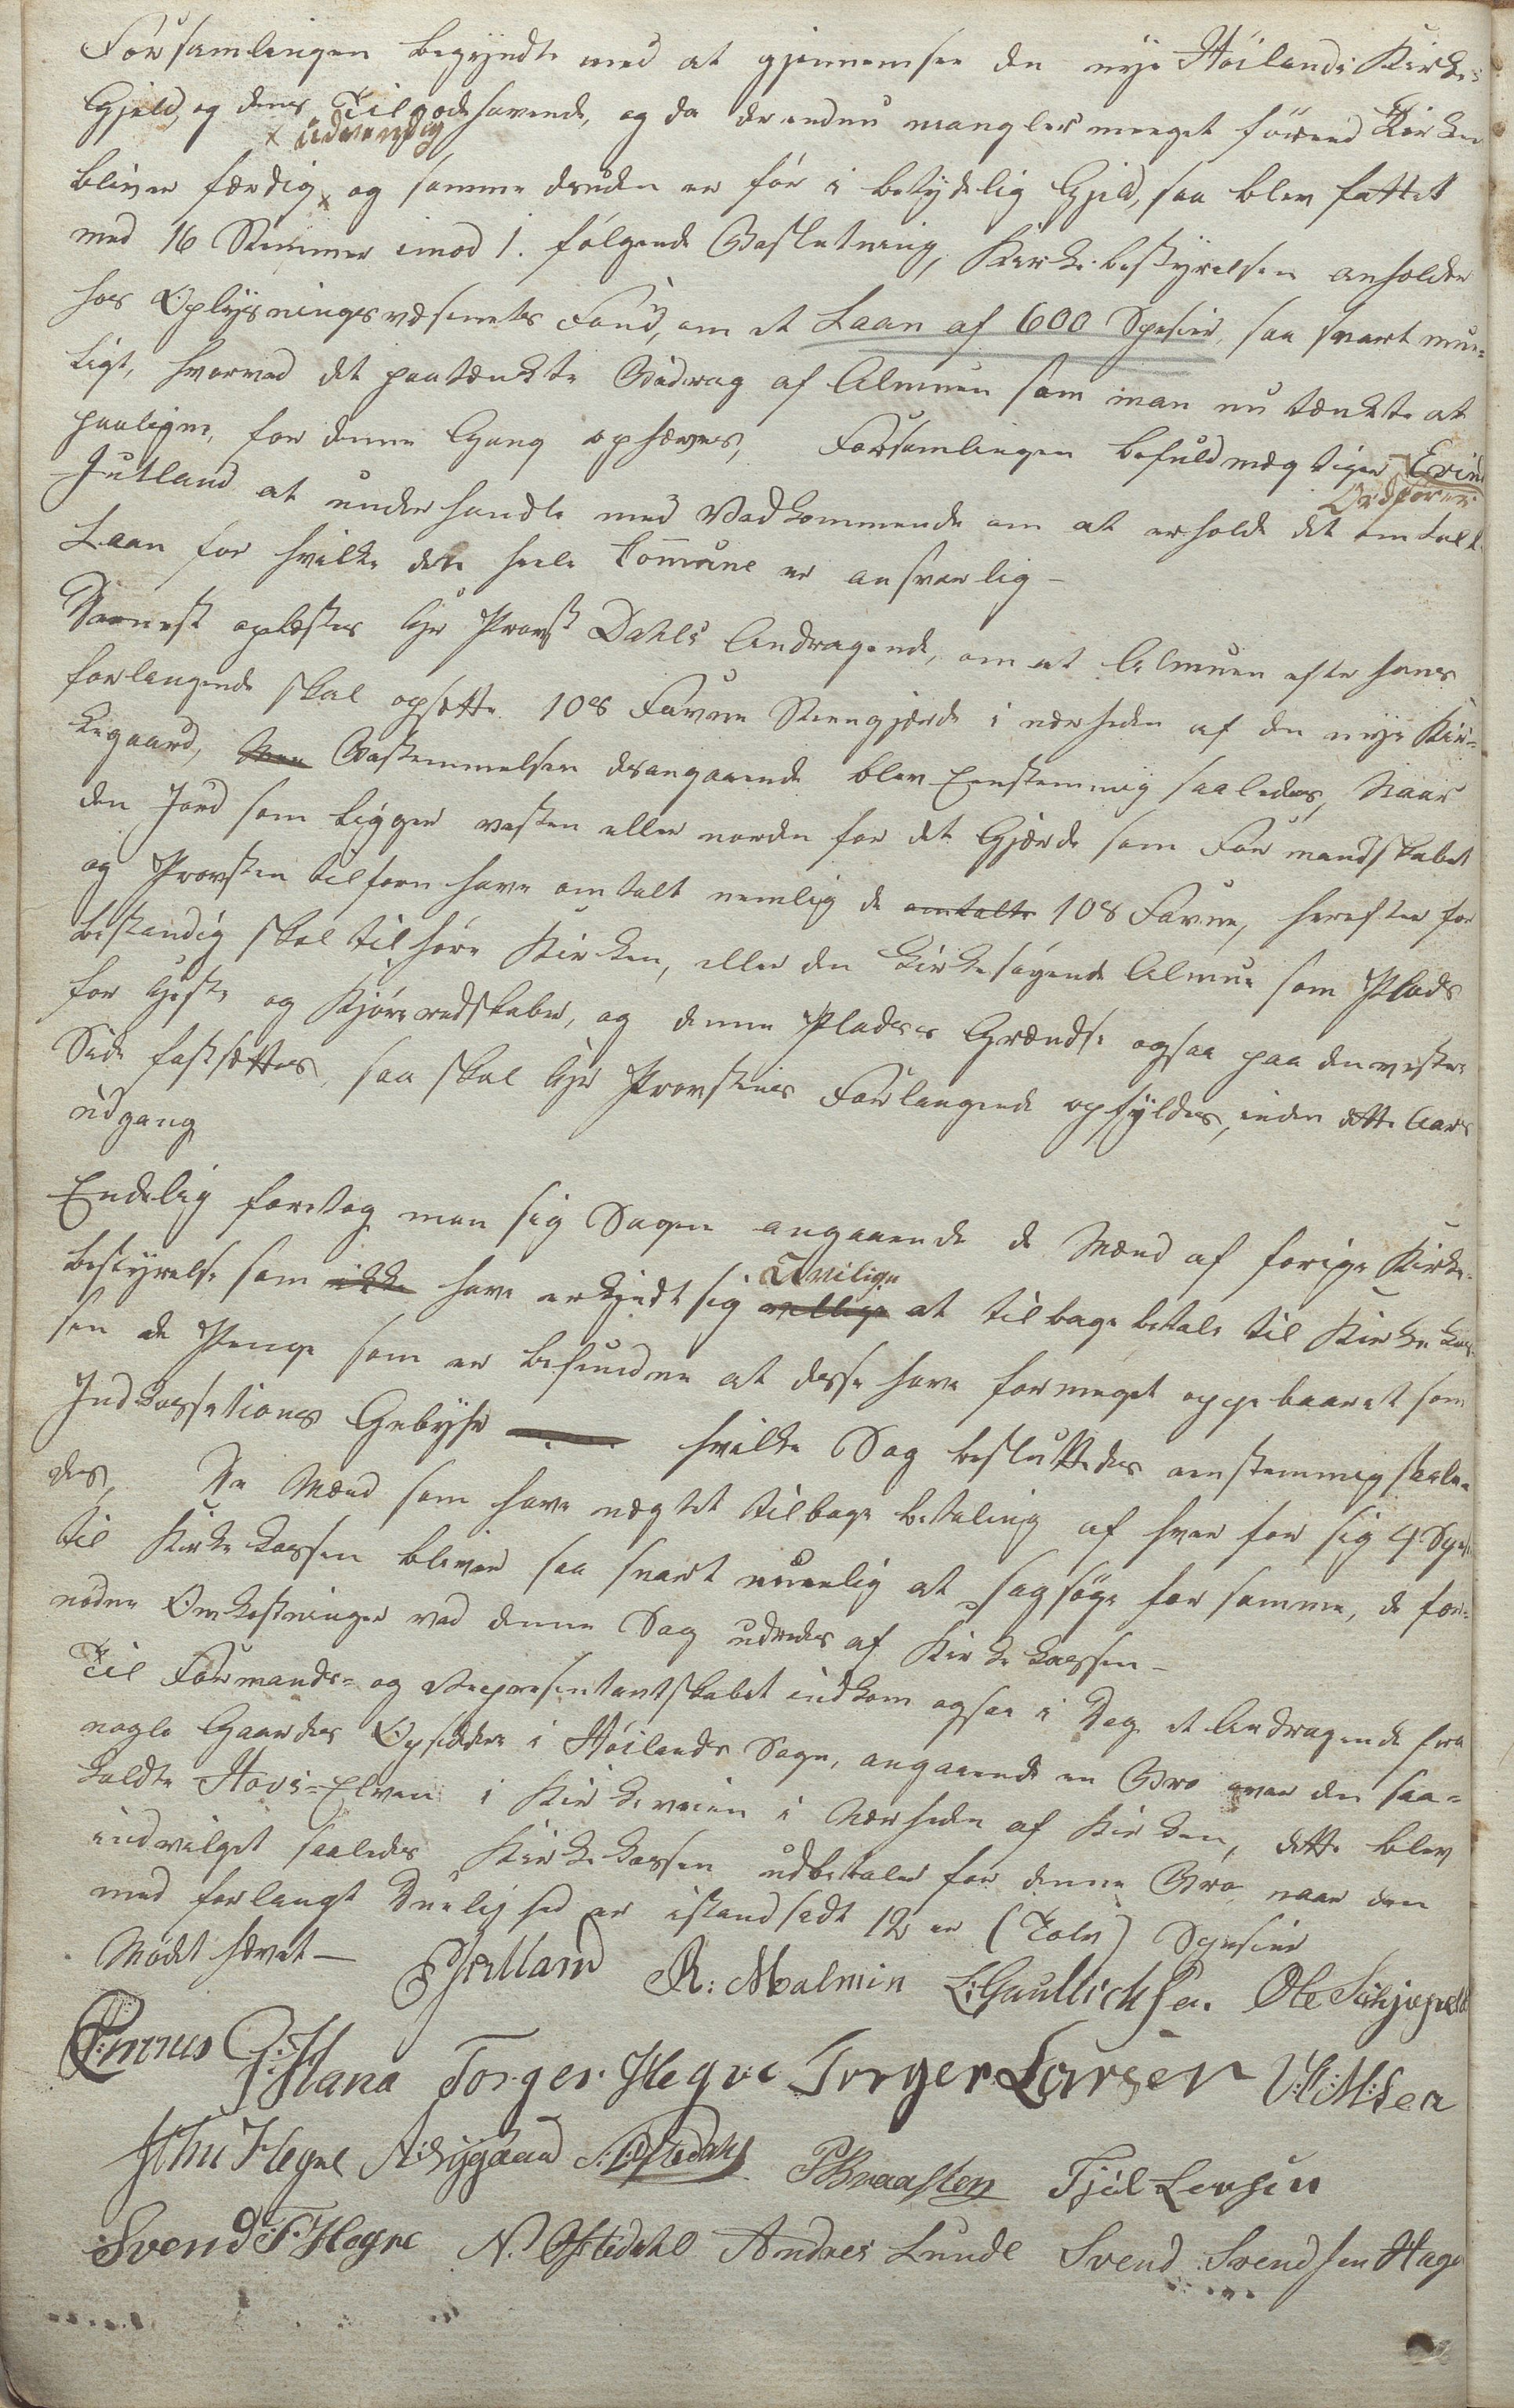 Forsamlingen begyndte med at gjennemsee den nye Höilands Kirkes
Gjeld, og dens Tilgodehavende, og da der endnu mangler meeget förend Kirken
x udvendig
bliver færdig x og samme desuden er för i betydelig Gjeld, saa blev fattet
med 16 Stemmer imod 1. fölgende Beslutning, Kirkebestyrelsen anholder
hos Oplysningsvæsenets Fond, om et Laan af 600 Spesier, saa snart mue-
ligt, hvorved det paatænkte Bidrag af Almuen som man nu tænkte at
paaligne, for denne Gang ophæves, Forsamlingen befuldmægtiger Evind
Ordförer
Jutland at underhandle med Vedkommende om at erholde det omtalte
Laan for hvilke den heele Com̄une er ansvarlig –
Dernæst oplæstes Hr Provst Dahls Andragende, om at Almuen efter hans
forlangende skal opsætte 108 Favne Steengjerde i nærheden af den nye Kir-
kegaard, Men Bestemmelsen desangaaende blev Eenstemmig saaledes, Naar
den Jord som ligger vesten eller norden for det Gjærde som Formandskabet
og Provsten tilforn have omtalt nemlig de omtalte 108 Favne, herefter for
bestandig skal tilhöre Kirken, eller den kirkesögende Almue som Plads
for Heste og Kjöreredskaber, og denne Pladses Grændse ogsaa paa den vestre
Side fastsættes, saa skal Hr Provstens Forlangende opfyldes, inden dette Aars
udgang
Endelig foretog man sig Sagen angaaende de Mænd af forige Kirke-
bestyrelse som ikke have erkjendt sig villige Uvilige at tilbage betale til Kirkekas-
sen de Penge som er befunden at desse have formeget oppebaaret som
Indkassations Gebyhr hvilke Sag besluttedes eenstemmig saale-
des, De Mænd som have nægtet tilbage betaling af hver for sig 4 Spes.
til Kirkekassen bliver saa snart mueelig at sagsöge for samme, de for-
nödne Omkostninger ved denne Sag udredes af Kirkekassen –
Til Formands- og Repræsentantskabet indkom ogsaa i Dag et Andragende fra
nogle Gaardes Opsiddere i Höilands Sogn, angaaende en Bro over den saa-
kaldte Hovs-Elven i Kirkeveien i Nærheden af Kirken, dette blev
indvilget saaledes Kirkekassen udbetaler for denne Bro naar den
med forlangt Duelighed er istandsadt 12 er (Tolv) Spesier
Mödet hævet – EJutland R: Malmin L: Gaullichsen. Ole Schjæveld
Omus G: Hana Torger Hegre Torger Larsen
John Hegre A: Lyggaard P Braasten Fjæl Levsen
Svend T. Hegre N. Ofstedahl Andres Lunde Svend Svendsen Hage